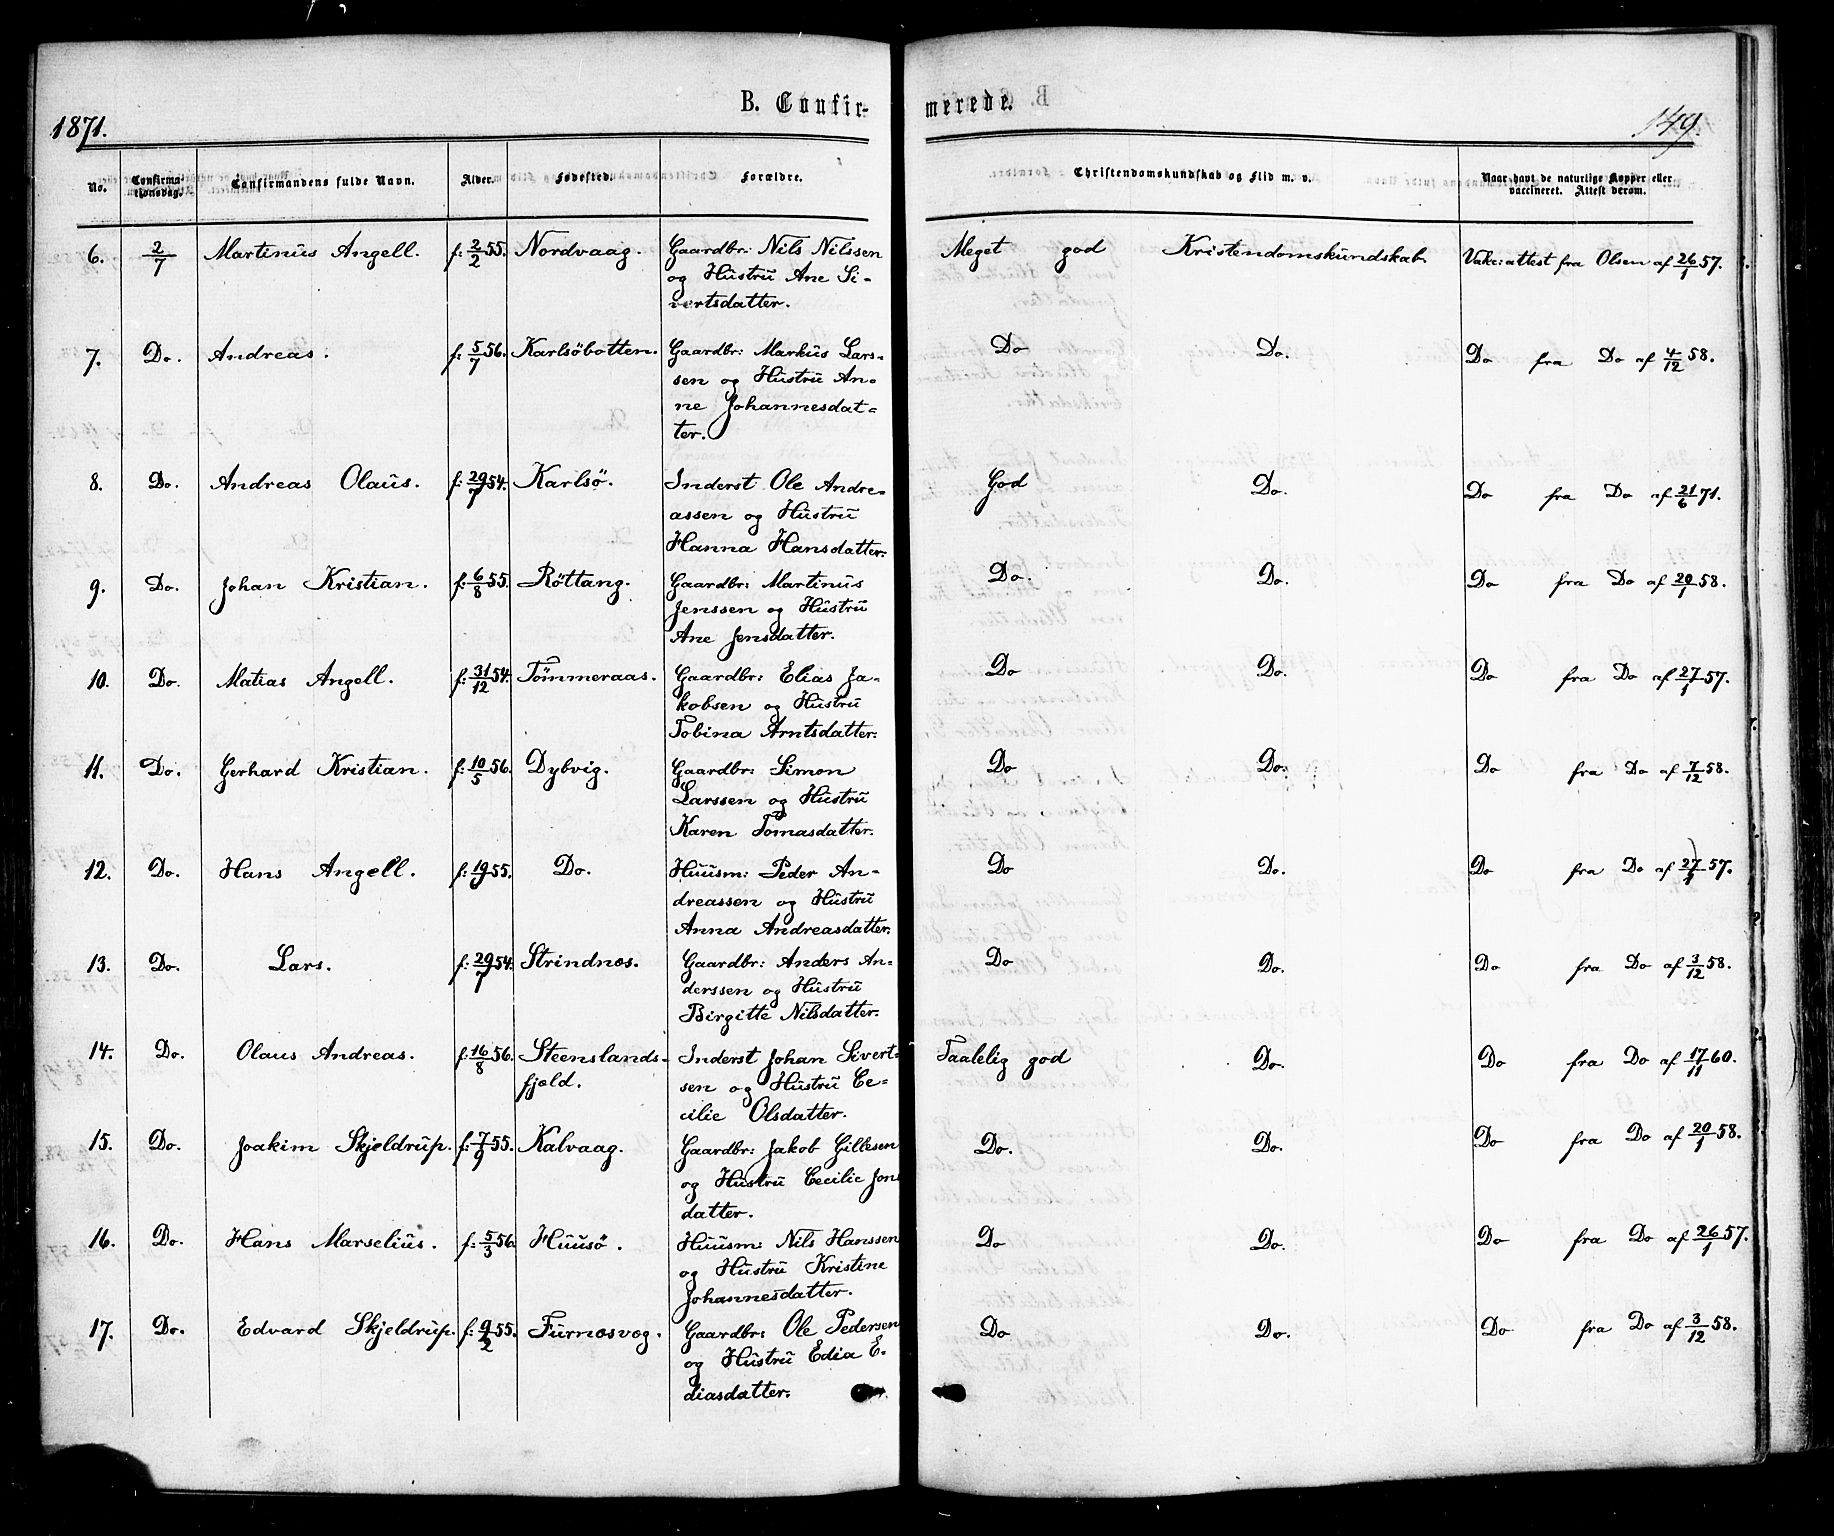 1871.
B. Confirmerede.
149.
No. Confirmationsdag. Confirmandens fulde Navn. Alder. Fødested. Forældre. Christendomskundskab og Flid m. v. Naar havt de naturlige Kopper eller vaccineret. Attest derom.
6. 2/7 Martinus Angell. f: 2/2 55. Nordvaag. Gaardbr: Nils Nilssen Meget god Kristendomskundskab. Vakc: attest fra Olsen af 26/1 57.
og Hustru Ane Si-
vertsdatter.
7. Do. Andreas. f: 5/7 56. Karlsöbotten. Gaardbr: Markus Lars- Do Do. Do fra Do af 4/12 58.
sen og Hustru An-
ne Johannesdat-
ter.
8. Do. Andreas Olaus. f: 29/7 54. Karlsö. Inderst Ole Andre- God Do. Do fra Do af 21/6 71.
assen og Hustru
Hanna Hansdatter.
9. Do. Johan Kristian. f: 6/8 55. Röttang. Gaardbr: Martinus Do. Do. Do fra Do af 20/1 58.
Jenssen og Hustru
Ane Jensdatter.
10. Do. Matias Angell. f: 31/12 54. Tömmeraas. Gaardbr: Elias Ja- Do Do. Do fra Do af 27/1 57.
kobsen og Hustru
Tobina Arntsdatter.
11. Do. Gerhard Kristian. f: 10/5 56. Dybvig. Gaardbr: Simon Do Do. Do fra Do af 7/12 58.
Larssen og Hustru
Karen Tomasdatter.
12. Do. Hans Angell. f: 19/9 55. Do. Huusm: Peder An- Do Do. Do fra Do af 27/1 57.
dreassen og Hustru
Anna Andreasdatter.
13. Do. Lars. f: 29/7 54. Strindnæs. Gaardbr: Anders An- Do Do. Do fra Do af 3/12 58.
derssen og Hustru
Birgitte Nilsdatter.
14. Do. Olaus Andreas. f: 16/8 56. Steenslands- Inderst Johan Sivert- Taalelig god Do. Do fra Do af 17/11 60.
fjæld. sen og Hustru Ce-
cilie Olsdatter.
15. Do. Joakim Skjeldrup. f: 7/9 55. Kalvaag. Gaardbr: Jakob Gillesen Do. Do. Do fra Do af 20/1 58.
og Hustru Cecilie Jons
datter.
16. Do. Hans Marselius. f: 5/3 56. Huusö. Huusm: Nils Hanssen Do Do. Do fra Do af 26/1 57.
og Hustru Kristine
Johannesdatter.
17. Do. Edvard Skjeldrup. f: 9/2 55. Furnæsvog. Gaardbr: Ole Pedersen Do Do. Do fra Do af 3/12 58.
og Hustru Edia E-
diasdatter.